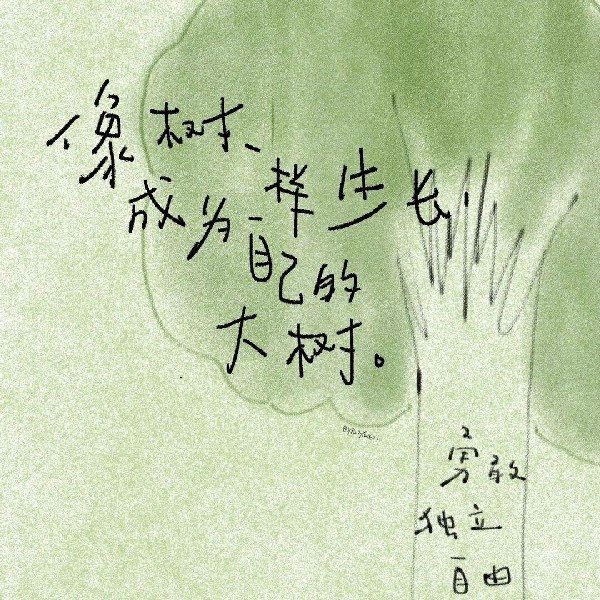 像树一样生长
成为自己的
大树。
勇敢
独立
自由